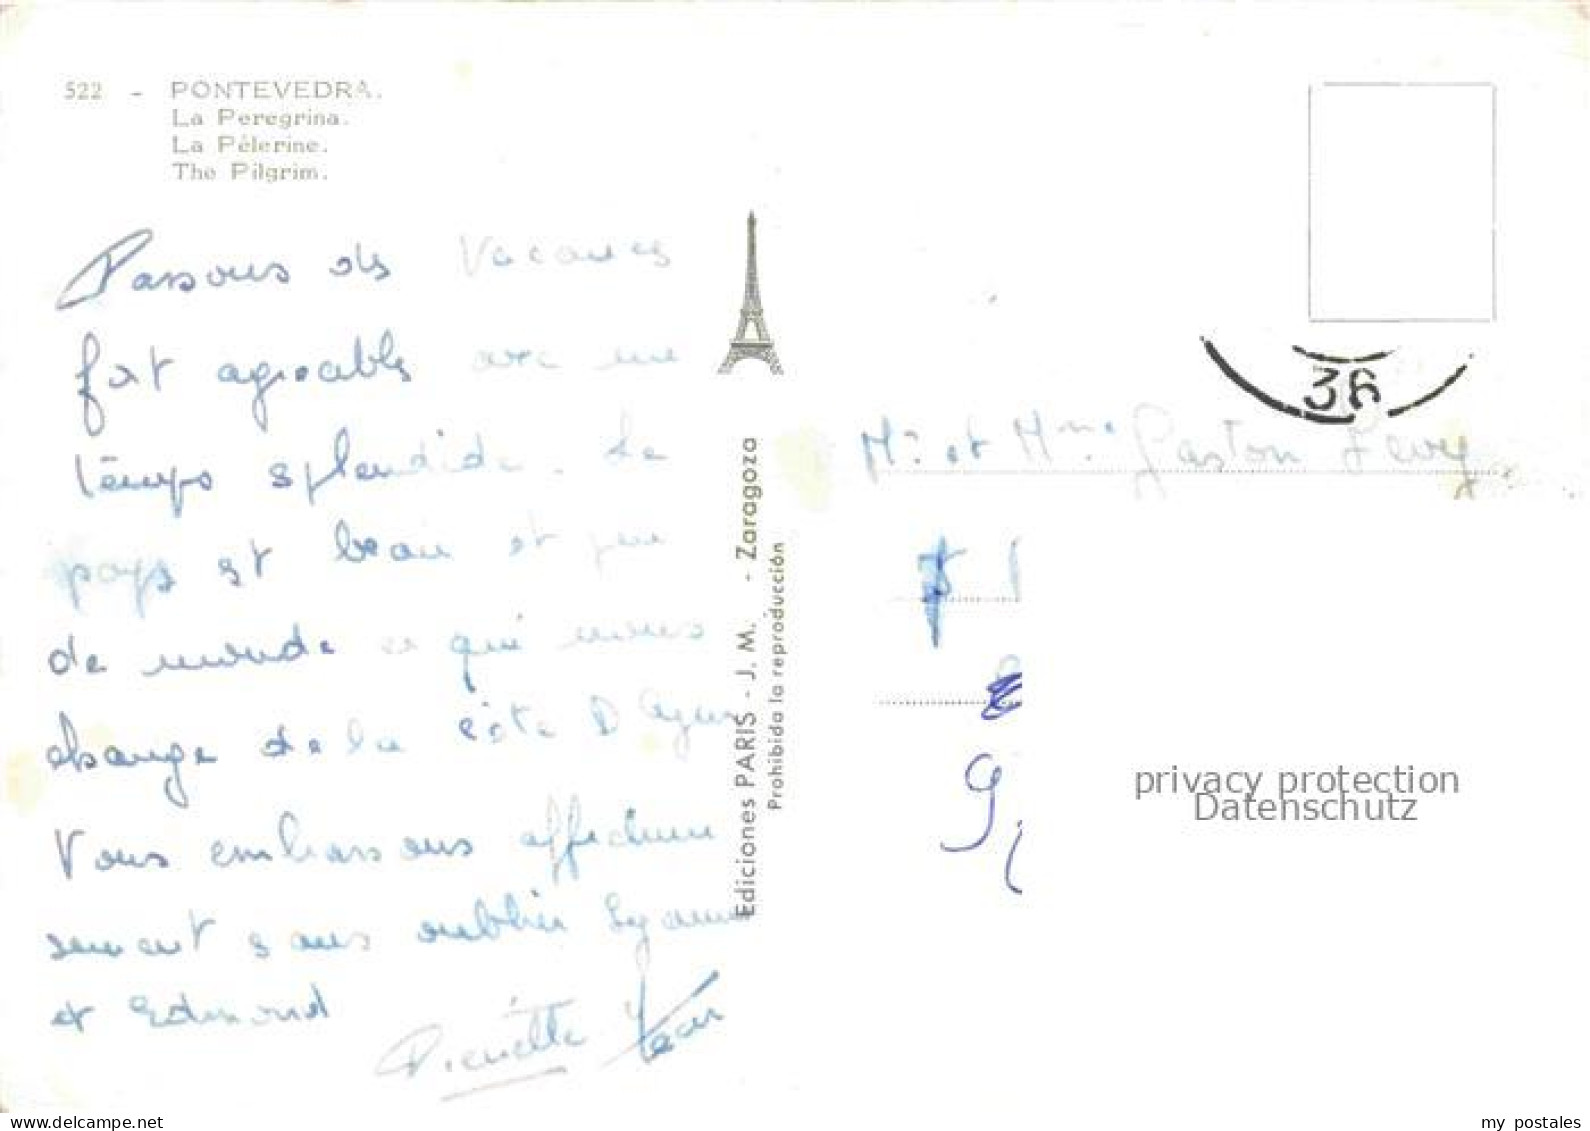 522 - PONTEVEDRA.
La Peregrina.
La Pélerine.
The Pilgrim.
Passons des vacances
fort agréables avec un
temps splendide. Le
pays est beau et peu
de monde ce qui nous
change de la côte D'Azur
Vous embrassons affectueu
sement sans oublier
et Edmond
Pierrette Jean
Ediciones PARIS - J. M. - Zaragoza
Prohibida la reproducción
36
Mr et Mme Gaston Levy
privacy protection
Datenschutz
my postales